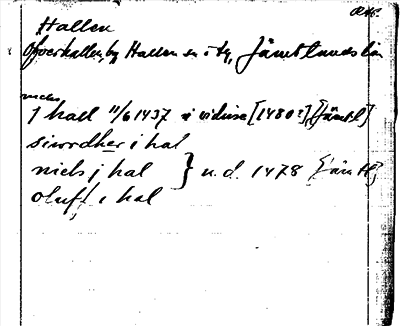 Hallen
Öfverhallen, by Hallen sn o tg, Jämtlands län
niels
j hall 11/6 1437 i vidisse [1480?] [Jämtl]
siwrdher i hal
niels j hal } u. d. 1478 [Jämtl]
oluff i hal